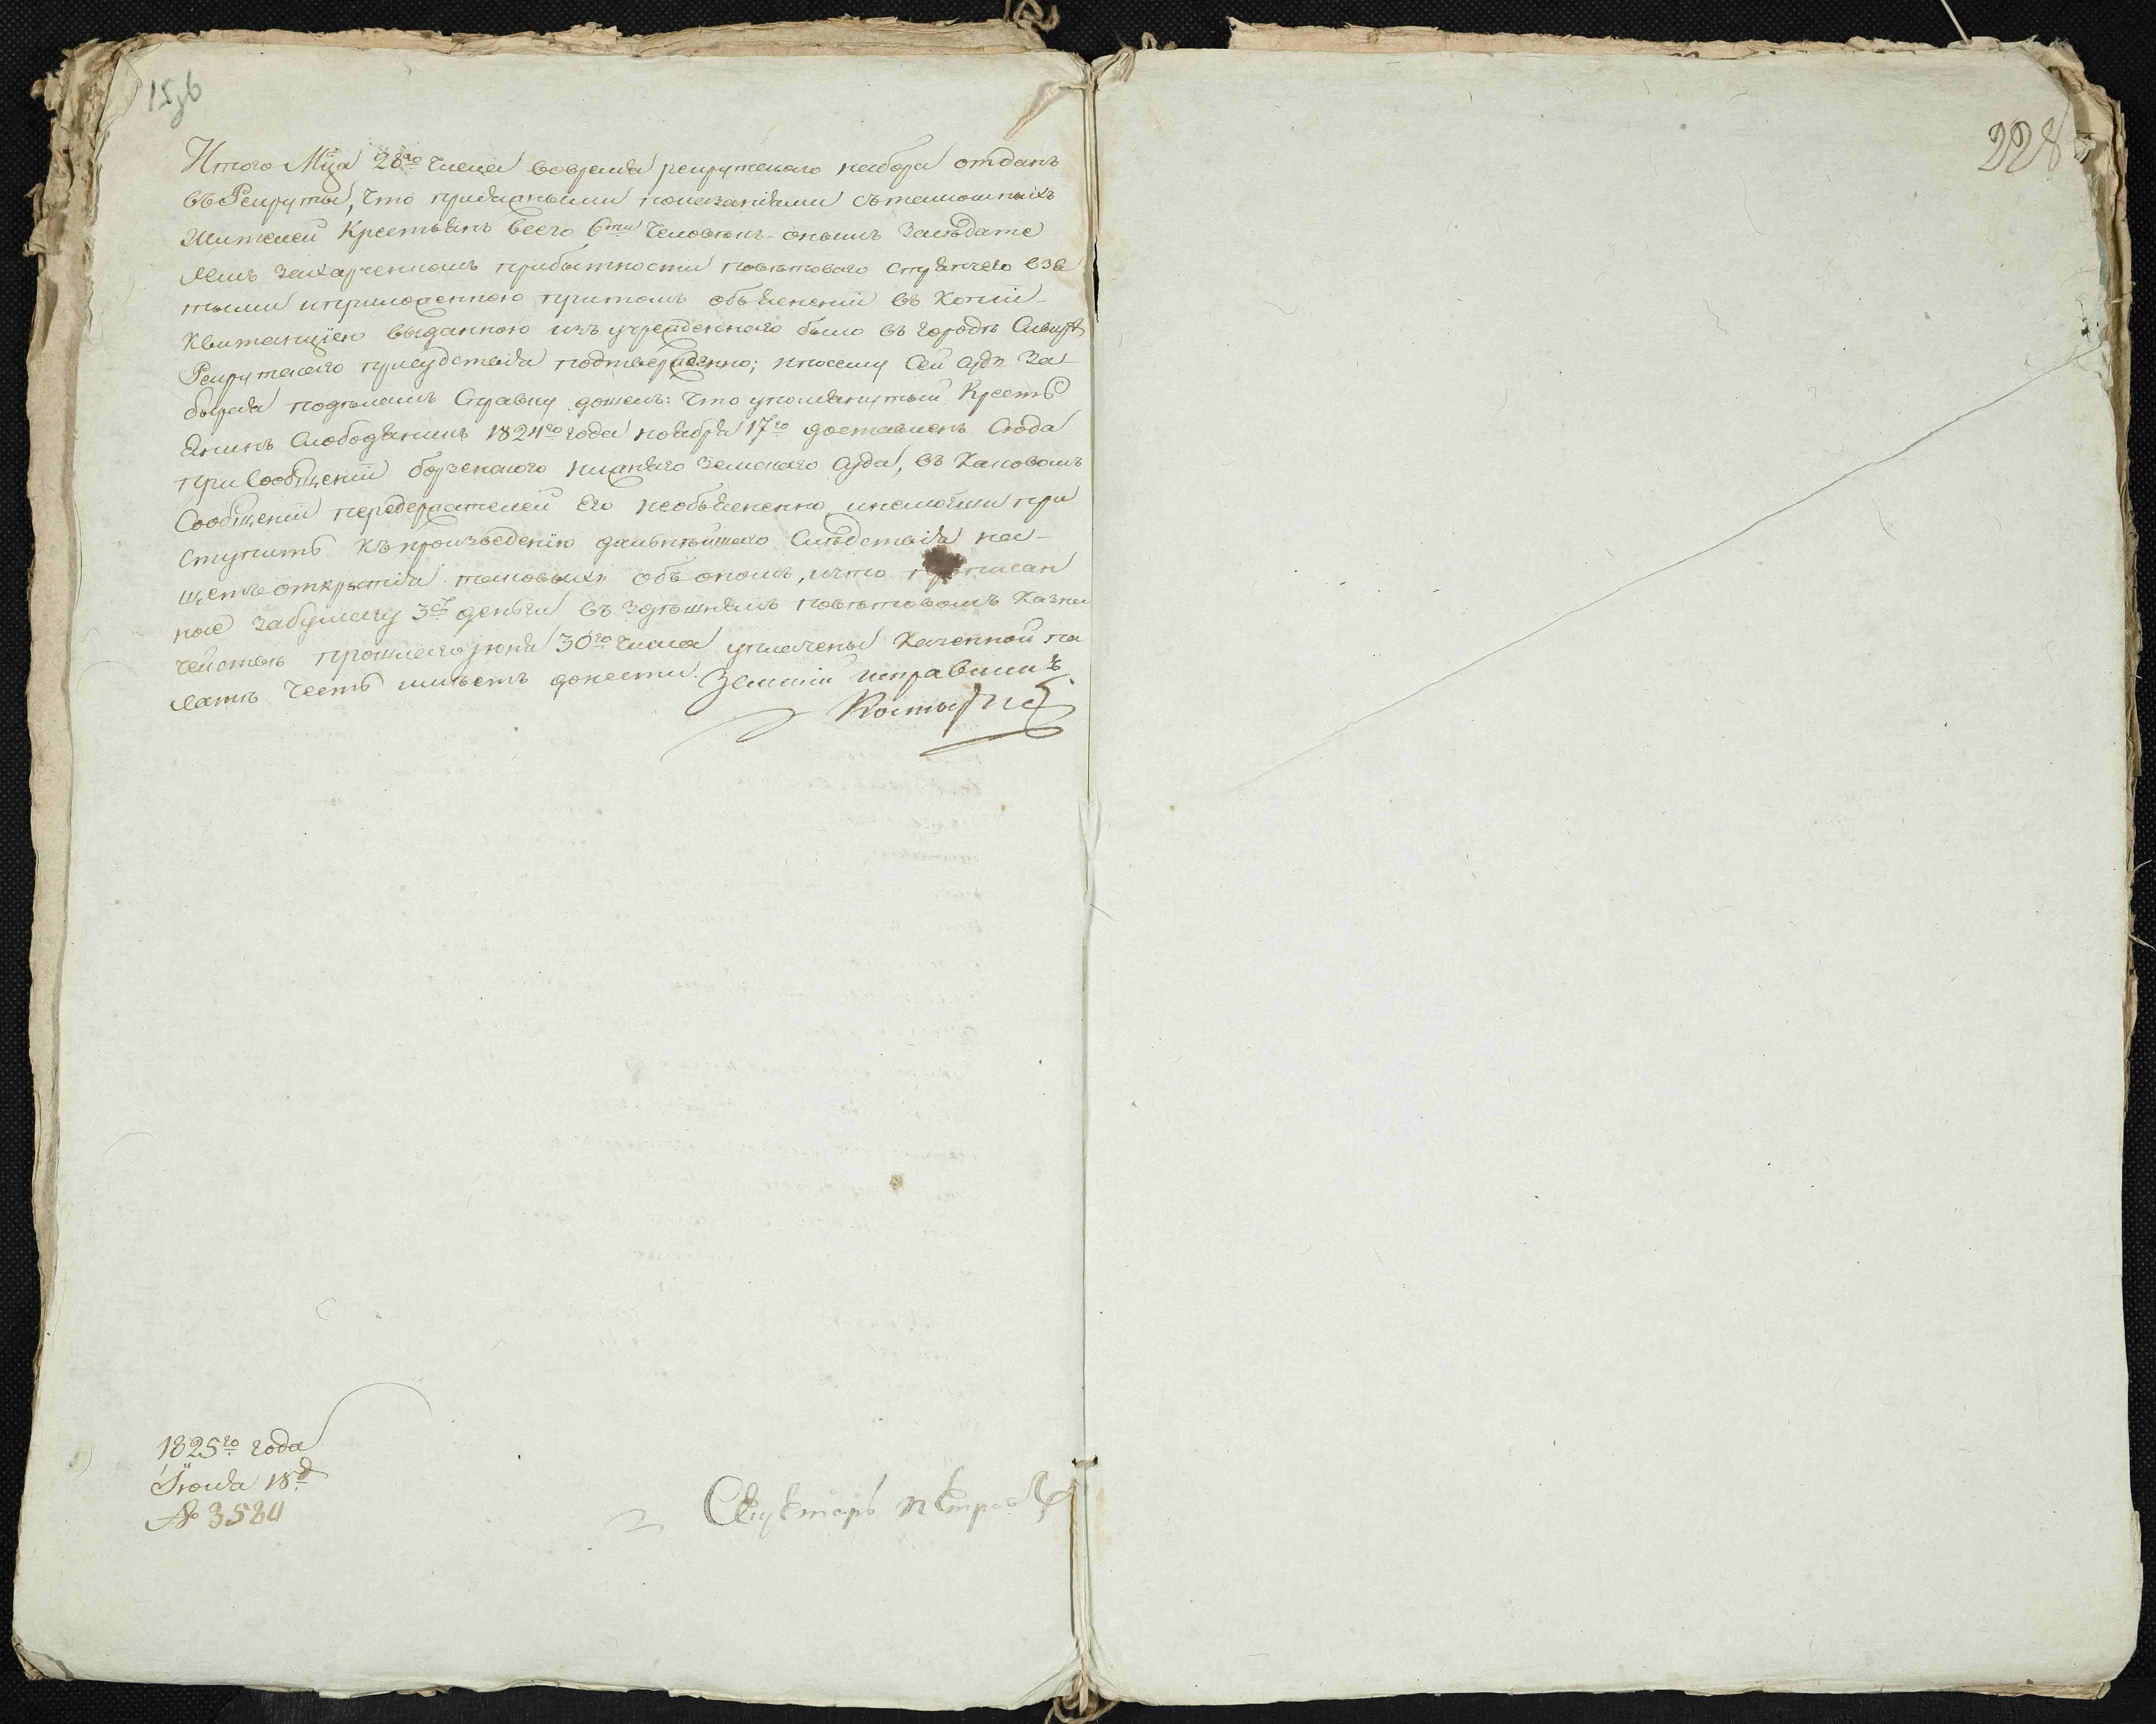 Итого Мца 28го числа вовремя рекрутского набора отданъ
въ Рекруты, что присяжными показаніями съ тамошныхъ
Жителей Крестьянъ всего 6ти Человѣкъ онымъ Засѣдате
лемъ Захарченкомъ прибытности повѣтоваго стряпчего взя
тыми иприложенною притомъ объясненіи въ Копіи
Квитанціею выданною изъ учрежденнаго было въ городѣ
Рекрутского присудствія подтверждено; ипосему Сей Судъ За
бырая подѣламъ Справку дошелъ: Что упомянутый Кресть
янинъ Слободяникъ 1824го года ноября 17го доставленъ Сюда
при Сообщеніи борзенского нижняго Земского Суда, въ Каковомъ
Сообщеніи передержателей Его необъяснено инемогши при
ступить къ произведенію дальнѣйшаго Слѣдствія на
щетъ открытія таковыхъ объ ономъ, ичто прописан
ные Забумагу 3 деньги въ здѣшнемъ повѣтовомъ Казна
чействѣ прошлого іюня 30го числа уплачены Казенной па
латѣ Честь имѣетъ донести. Земскій исправникъ
1825го года
Іюля 18д
№ 3584
Секретарь
228